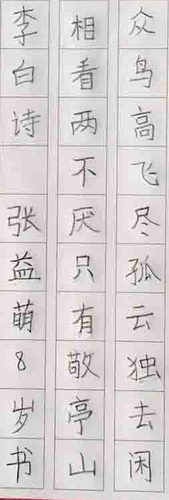 众鸟高飞尽孤云独去闲
相看两不厌只有敬亭山
李白诗 张益萌8岁书